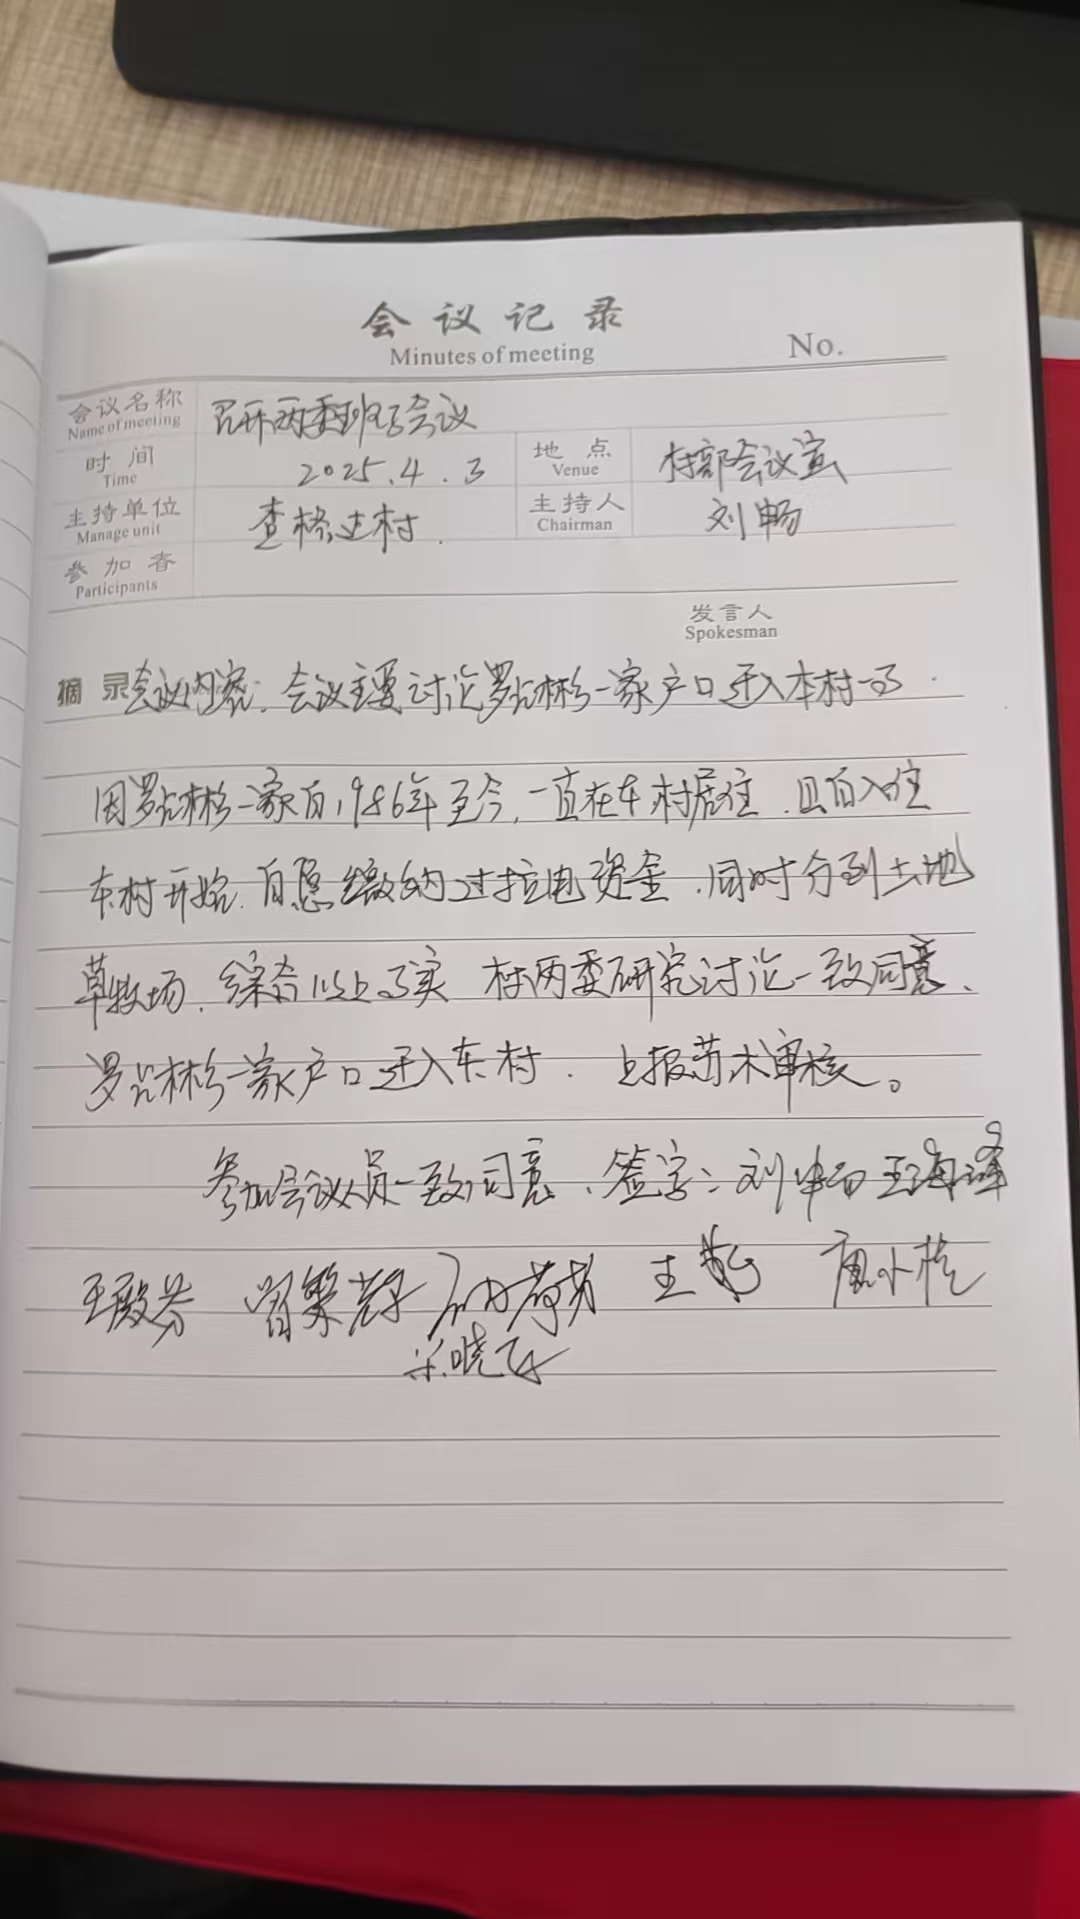 会议记录
Minutes of meeting
No.
会议名称 Name of meeting 召开两委班子会议
时间 Time 2025.4.3 地点 Venue 村部会议室
主持单位 Manage unit 查格达村. 主持人 Chairman 刘畅
参加者 Participants
发言人 Spokesman
摘录 会议内容. 会议主要讨论罗 林杉一家户口迁入本村一事.
因罗 林杉一家自1986年至今,一直在本村居住.且自入住
本村开始.自愿缴纳过拉电资金.同时分到土地
草牧场.综合以上事实 村两委研究讨论一致同意、
罗 林杉一家户口迁入本村. 上报苏木审核。
参加会议人员一致同意、签字:刘申 王海泽
王殿芬 王 唐小
梁晓飞